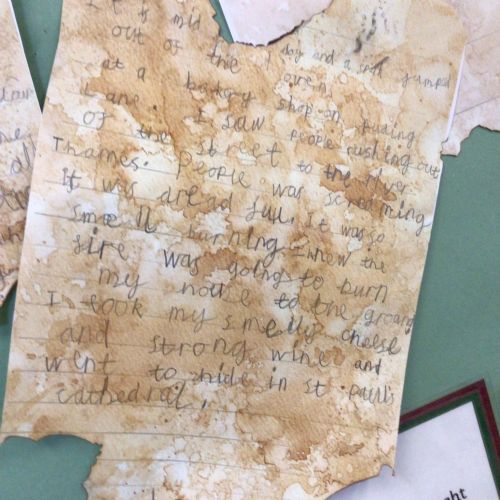 It is mid day and a spark jumped
out of the oven
at a bakery shop on puding
Lane. I saw people rushing out
of the street to the river
Thames. People was screaming
It was dreadful. It was so
smell burning I knew the
fire was going to burn
my house to the ground
I took my smelly cheese
and strong wine and
went to hide in st paul's
cathedral.